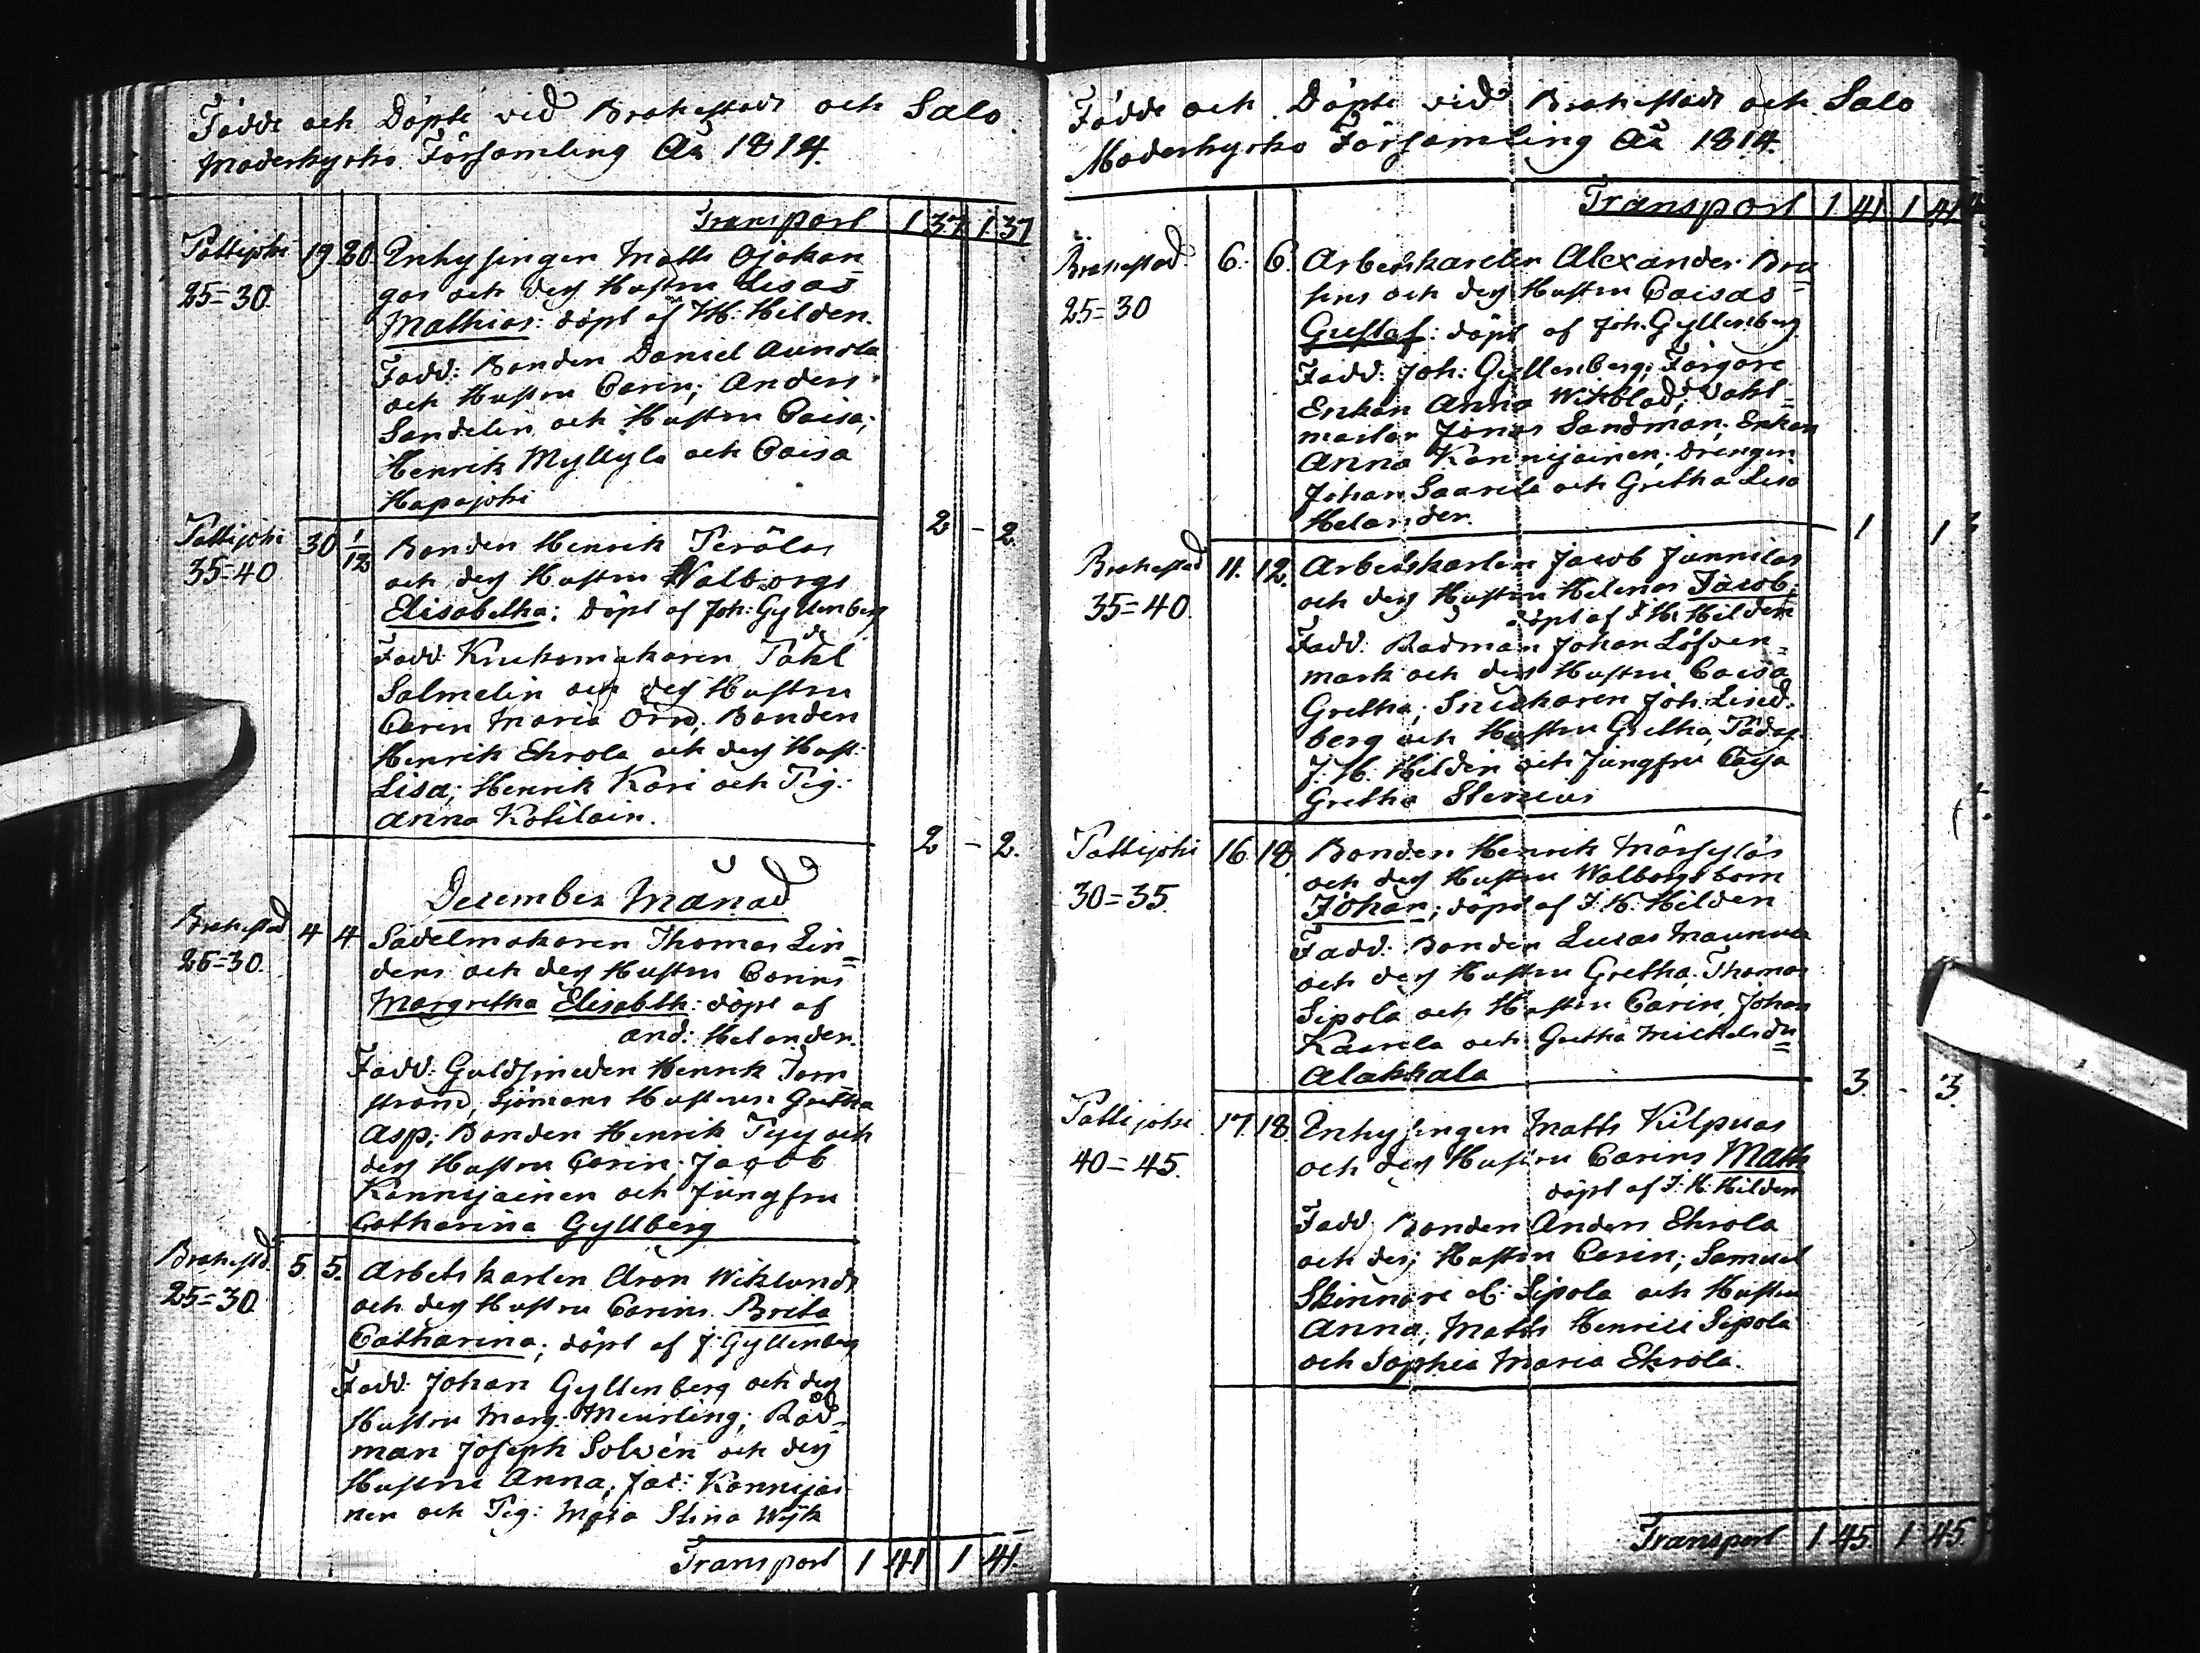 Födde och Döpte vid Brahestads och Salo
Moderkyrko Församling År 1814.
Transport 1 37 1 37
Pattijoki 19. 20. Inhysingen Matts Ojakan=
25=30. gas och dess Hustru Lisas
Mathias: döpt af J. H. Hilden.
Fadd: Bonden Daniel Aunola
och Hustru Carin; Anders
Sandelin och Hustru Caisa;
Henrik Myllylä och Caisa
Hapajoki
2 - 2.
Pattijoki 30 1/12 Bonden Henrik Perälas
35=40 och dess Hustru Walborgs
Elisabetha: döpt af Joh: Gyllenberg
Fadd: Krukomakaren Pähl
Salmelin och dess Hustru
Carin Maria Örn; Bonden
Henrik Ehrola och dess Hust:
Lisa; Henrik Kari och Pig:
Anna Kotilain.
2 - 2.
December Månad
Brahestad 4 4 Sadelmakaren Thomas Lin=
25=30. dens och dess Hustru Carins
Margretha Elisabeth: döpt af
And: Helander.
Fadd: Guldsmeden Henrik Torn
ström, Sjömans Hustrun Gretha
Asp; Bonden Henrik Pyy och
dess Hustru Carin; Jacob
Kannijainen och Jungfru
Catharina Gyllberg
Brahestd. 5 5. Arbetskarlen Aron Wiklunds
25=30 och dess Hustru Carins Brita
Catharina; döpt af J: Gyllenberg
Fadd: Johan Gyllenberg och dess
Hustru Marg: Meurling; Råd=
man Joseph Solvén och dess
Hustru Anna; Jac: Kannijai
nen och Pig: Maja Stina Wijk
Transport 1 41 1 41.
Födde och Döpte vid Brahestads och Salo
Moderkyrko Församling År 1814.
Transport 1 41 1 41
Brahestad 6. 6. Arbetskarlen Alexander Bru=
25=30 sins och dess Hustru Caisas
Gustaf: döpt af Joh. Gyllenberg.
Fadd: Joh: Gyllenberg; Färgare
Enkan Anna Wikblad; Vakt=
mästar Jonas Sandman; Enkan
Anna Kannijainen; Drengen
Johan Saarela och Gretha Lisa
Helander.
1 1
Brahestad 11. 12. Arbetskarlen Jacob Junnilas
35=40. och dess Hustru Helenas Jacob;
döpt af J. H. Hilden
Fadd: Radman Johan Löfven=
mark och dess Hustru Caisa
Gretha; Snickaren Joh. Lind=
berg och Hustru Gretha,
J. H. Hilden och Jungfru Cajsa
Gretha Stenius
Pattijoki 16. 18. Bonden Henrik Märsyläs
30=35. och dess Hustru Walborgs barn
Johan; döpt af J. H. Hilden
Fadd: Bonden Lucas Maunula
och dess Hustru Gretha; Thomas
Sipola och Hustru Carin, Johan
Kaarela och Gretha Michelsdr=
Alakkala
3. - 3.
Pattijoki 17. 18. Inhysingen Matts Kilpuas
40=45. och dess Hustru Carins Matts
döpt af J. H. Hilden
Fadd: Bonden Anders Ehrola
och dess Hustru Carin; Samuel
Skinnare el: Sipola och Hustru
Anna; Matts Henrici Sipola
och Sophia Maria Ehrola.
Transport 1 45 1 45.